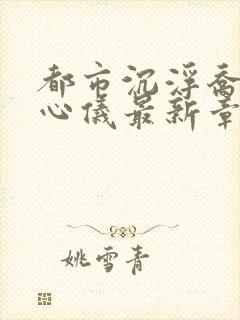 都市沉浮乔
心仪最新章
姚雪青